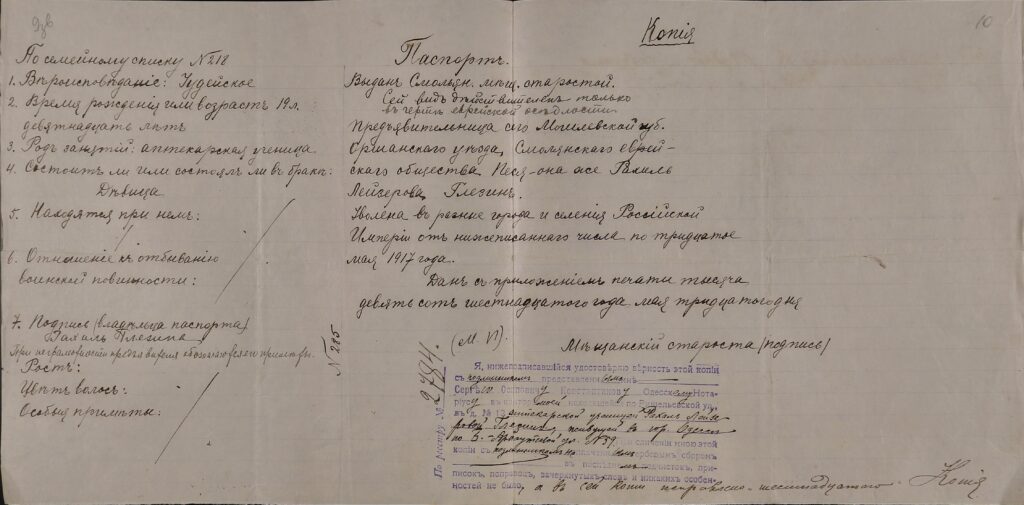 10
Копія
По семейному списку №218
1. Вѣроисповѣданіе: Іудейское
2. Время рожденія или возрастъ 19 л.
девятнадцать лѣтъ
3. Родъ занятій: аптекарская ученица
4. Состоитъ ли или состоялъ ли въ бракѣ:
Дѣвица
5. Находятся при немъ:
6. Отношеніе къ отбыванію
воинской повинности:
7. Подпись (владѣльца паспорта)
Рахиль Плезинъ
При неграмотности предъявителя обозначаются примѣты.
Ростъ:
Цвѣтъ волосъ:
Особыя примѣты:
Паспортъ.
Выданъ Смольян. мѣщ. старостой.
Сей видъ дѣйствителенъ только
въ чертѣ еврейской осѣдлости.
Предъявительница сего Могилевской губ.
Оршанскаго уѣзда, Смолянскаго еврей-
скаго общества Песя-она же Рахиль
Лейзерова Плезинъ.
Уволена въ разные города и селенія Россійской
Имперіи отъ нижеписаннаго числа по тридцатое
мая 1917 года.
Данъ съ приложеніемъ печати тысяча
девять сотъ шестнадцатого года мая тридцатого дня
№ 285
(М. П.)
Мѣщанскій староста (подпись)
По реестру № 2784.
Я, нижеподписавшійся удостовѣряю вѣрность этой копіи
съ подлинникомъ представленнымъ мнѣ
Сергѣю Осиповичу Константинову Одесскому Нота-
ріусу въ конторѣ моей по Ришельевской ул.
въ д. № 13 аптекарской ученицей Рахиль Лейзе-
ровой Плезинъ, живущей въ гор. Одессѣ
по Б.-Арнаутской ул. №39. При сличеніи мною этой
копіи съ подлинникомъ гербовымъ сборомъ
въ послѣднемъ подчистокъ, при-
писокъ, поправокъ, зачеркнутыхъ словъ и никакихъ особен-
ностей не было, а въ сей копіи поправлено-шестнадцатого. Копія